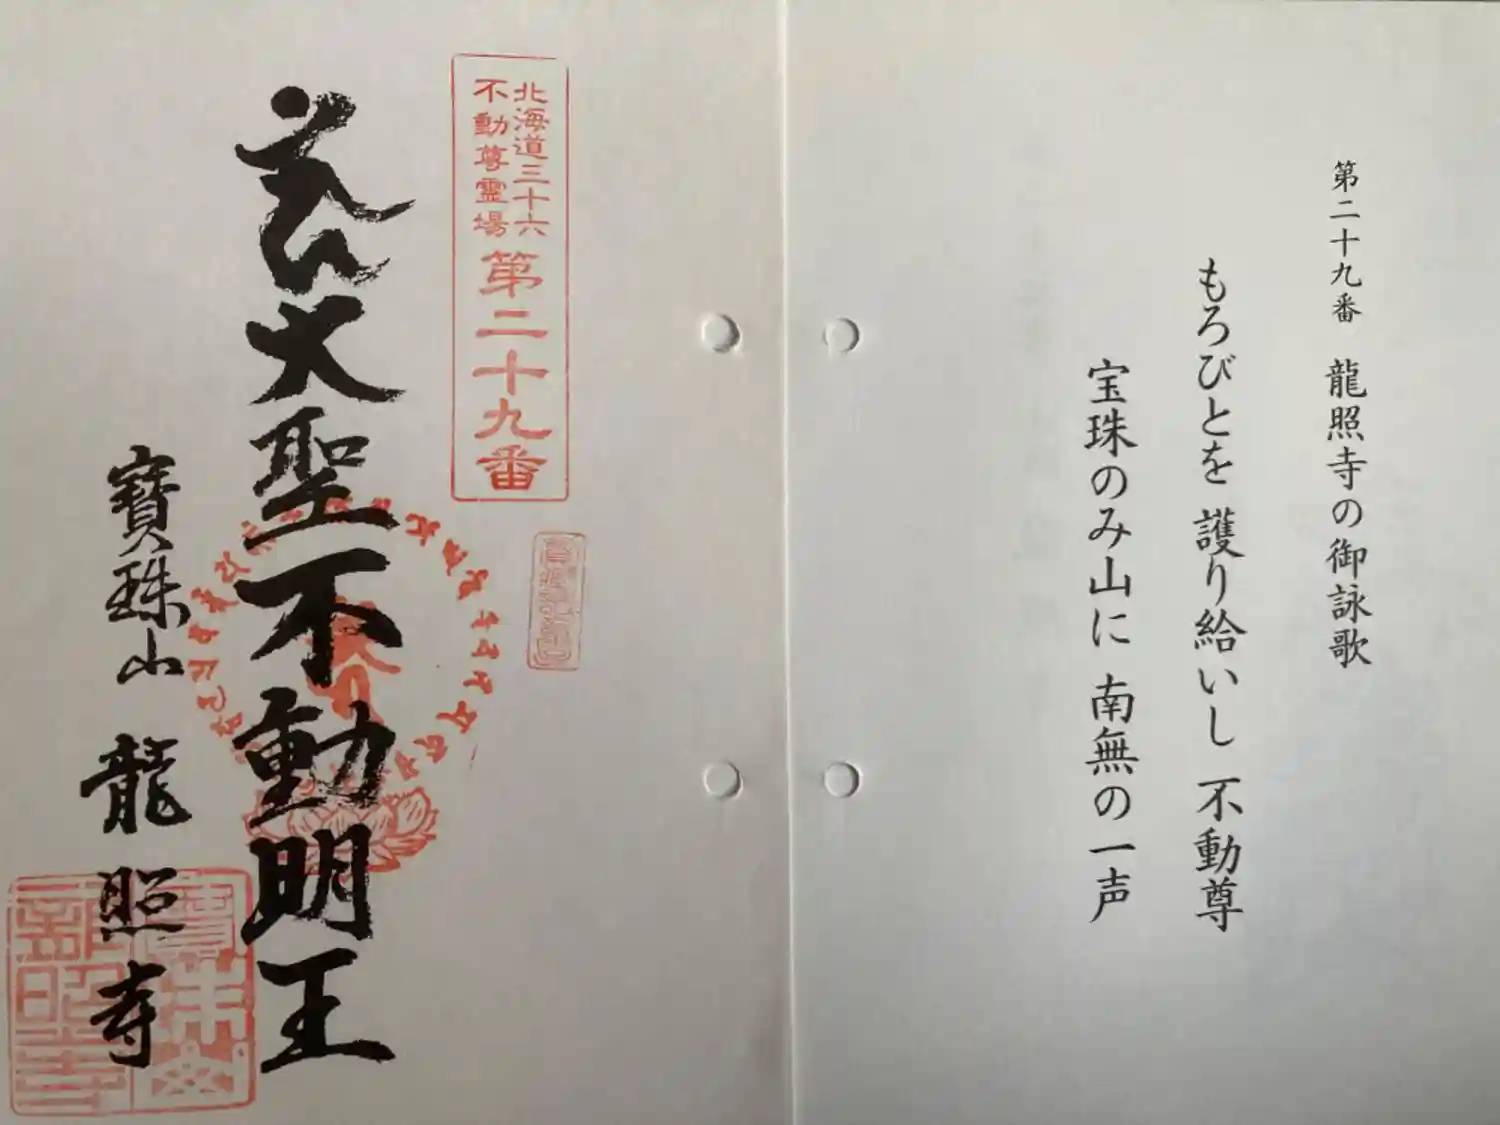 第二十九番 龍照寺の御詠歌
もろびとを 護り給いし 不動尊
宝珠のみ山に 南無の一声
北海道三十六
不動尊霊場
第二十九番
大聖不動明王
寶珠山 龍照寺
寶珠山
龍照寺